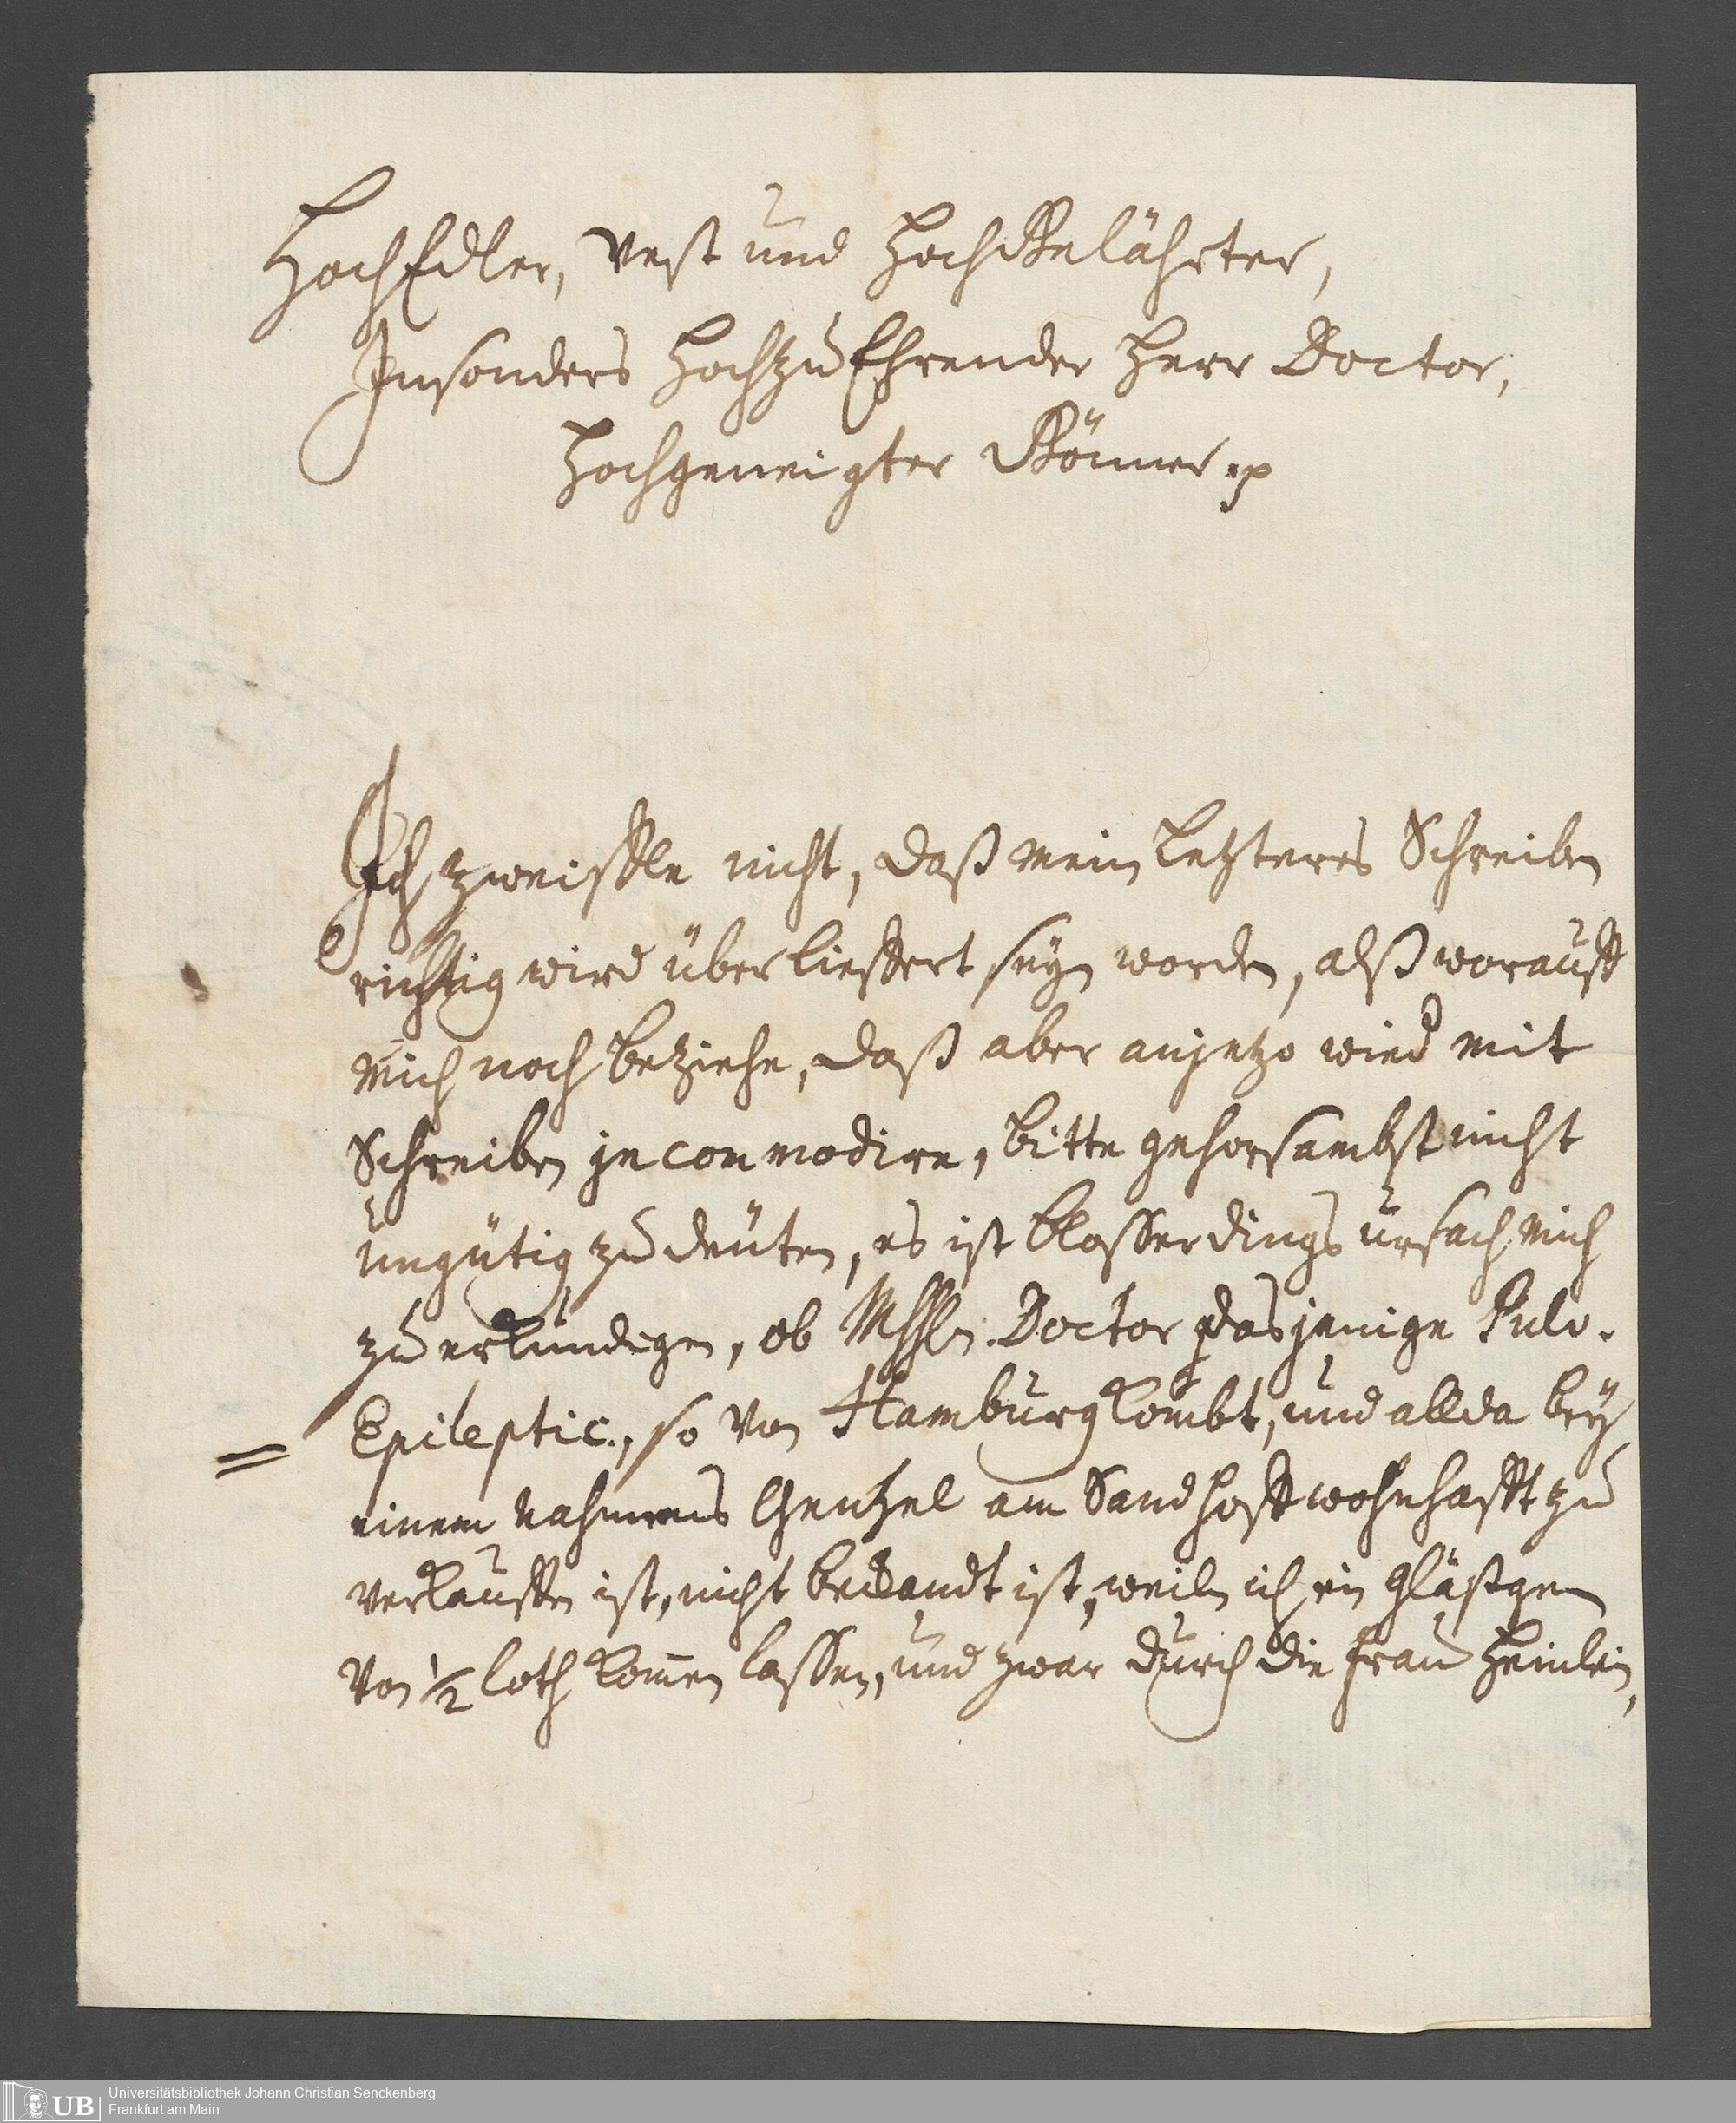 HochEdler, Vest und HochGelährter,
Insonders HochzuEhrender Herr Doctor,
Hochgeneigter Gönner p
Ich zweiffle nicht, daß mein letzteres Schreiben
richtig wird überlieffert seyn worden, alß worauff
mich noch beziehe, daß aber anjetzo wied mit
Schreiben incommodire, bitte gehorsambst nicht
ungütig zu deuten, es ist blosserdings ursach mich
zu erkundigen, ob Doctor dasjenige Pulv.
Epileptic., so von Hamburg kombt, und allda bey
einem nahmens Gentzel am Sandhoff wohnhafft zu
verkauffen ist, nicht bekandt ist, weiln ich ein Gläßgen
von 1/2 loth kommen lassen, und zwar durch die Frau Heinlein,
=
Universitätsbibliothek Johann Christian Senckenberg
Frankfurt am Main
UB